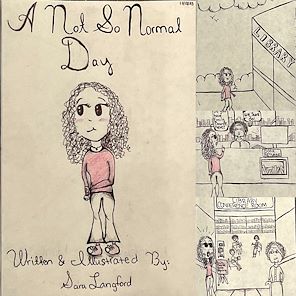 A Not So Normal
Day
Written & Illustrated By:
Sara Langford
LIBRARY
LIBRARY
CONFERENCE ROOM